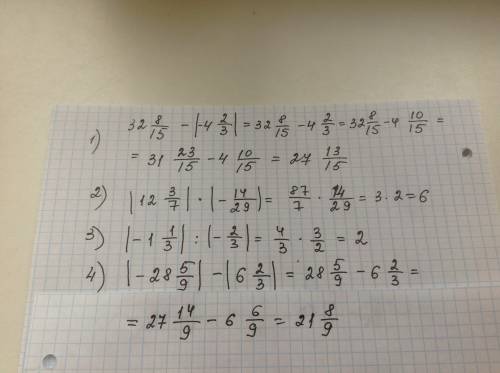 1) 32 8/15 - |-4 2/3| = 32 8/15 - 4 2/3 = 32 8/15 - 4 10/15 =
= 31 23/15 - 4 10/15 = 27 13/15
2) |12 3/7| · |-14/29| = 87/7 · 14/29 = 3 · 2 = 6
3) |-1 1/3| : |-2/3| = 4/3 · 3/2 = 2
4) |-28 5/9| - |6 2/3| = 28 5/9 - 6 2/3 =
= 27 14/9 - 6 6/9 = 21 8/9